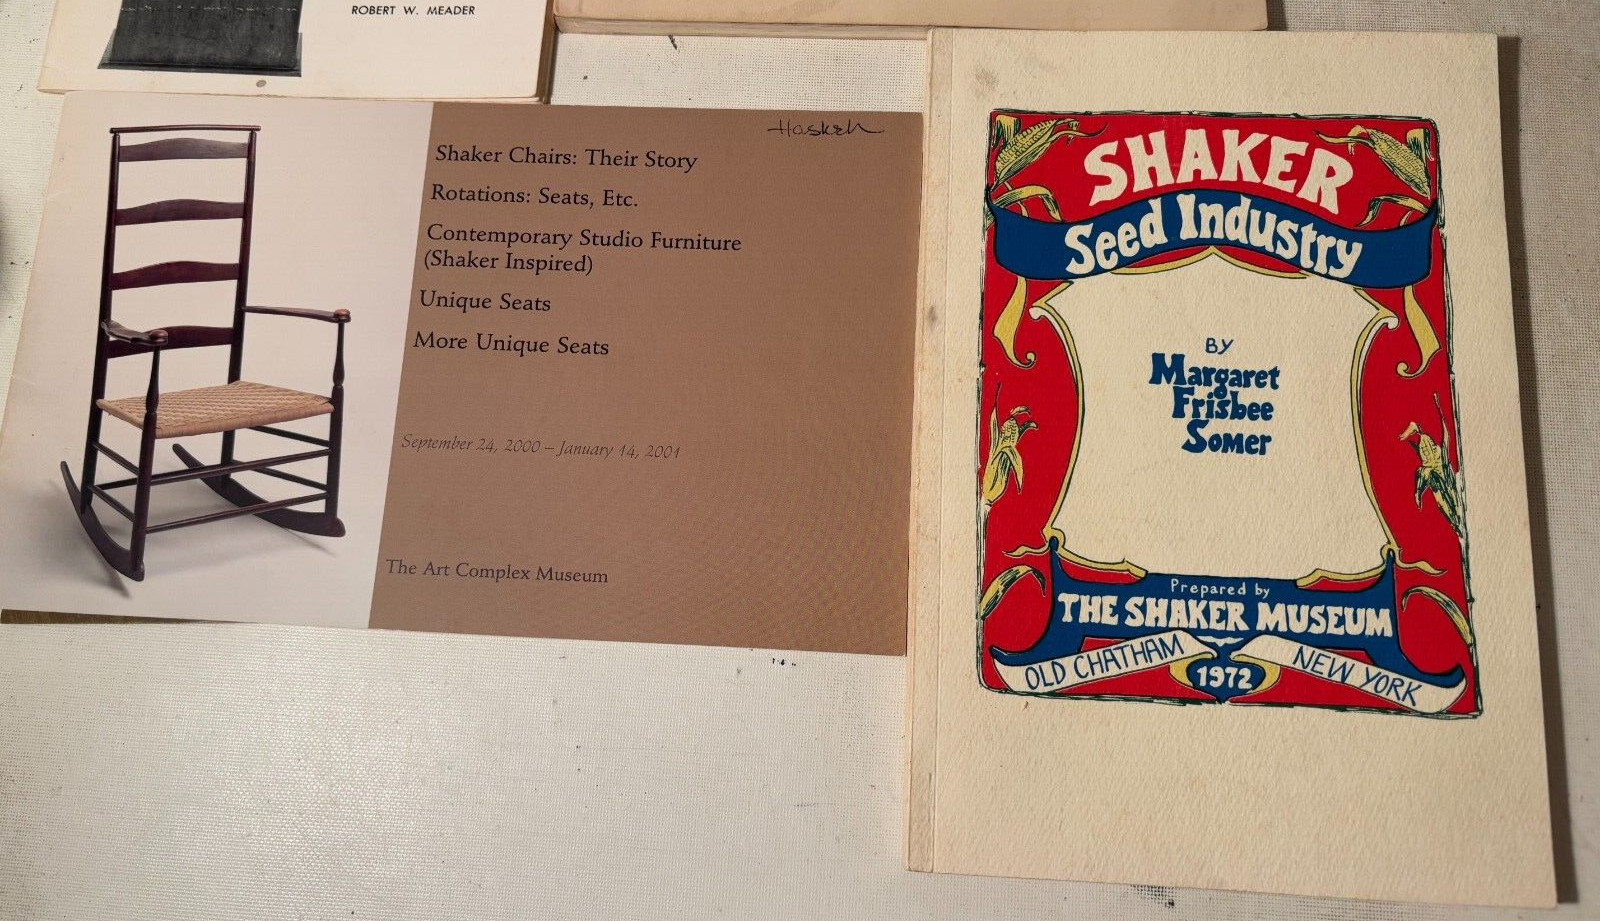 ROBERT W. MEADER
Haskell
Shaker Chairs: Their Story
Rotations: Seats, Etc.
Contemporary Studio Furniture
(Shaker Inspired)
Unique Seats
More Unique Seats
September 24, 2000 – January 14, 2001
The Art Complex Museum
SHAKER
Seed Industry
BY
Margaret
Frisbee
Somer
Prepared by
THE SHAKER MUSEUM
OLD CHATHAM
1972
NEW YORK